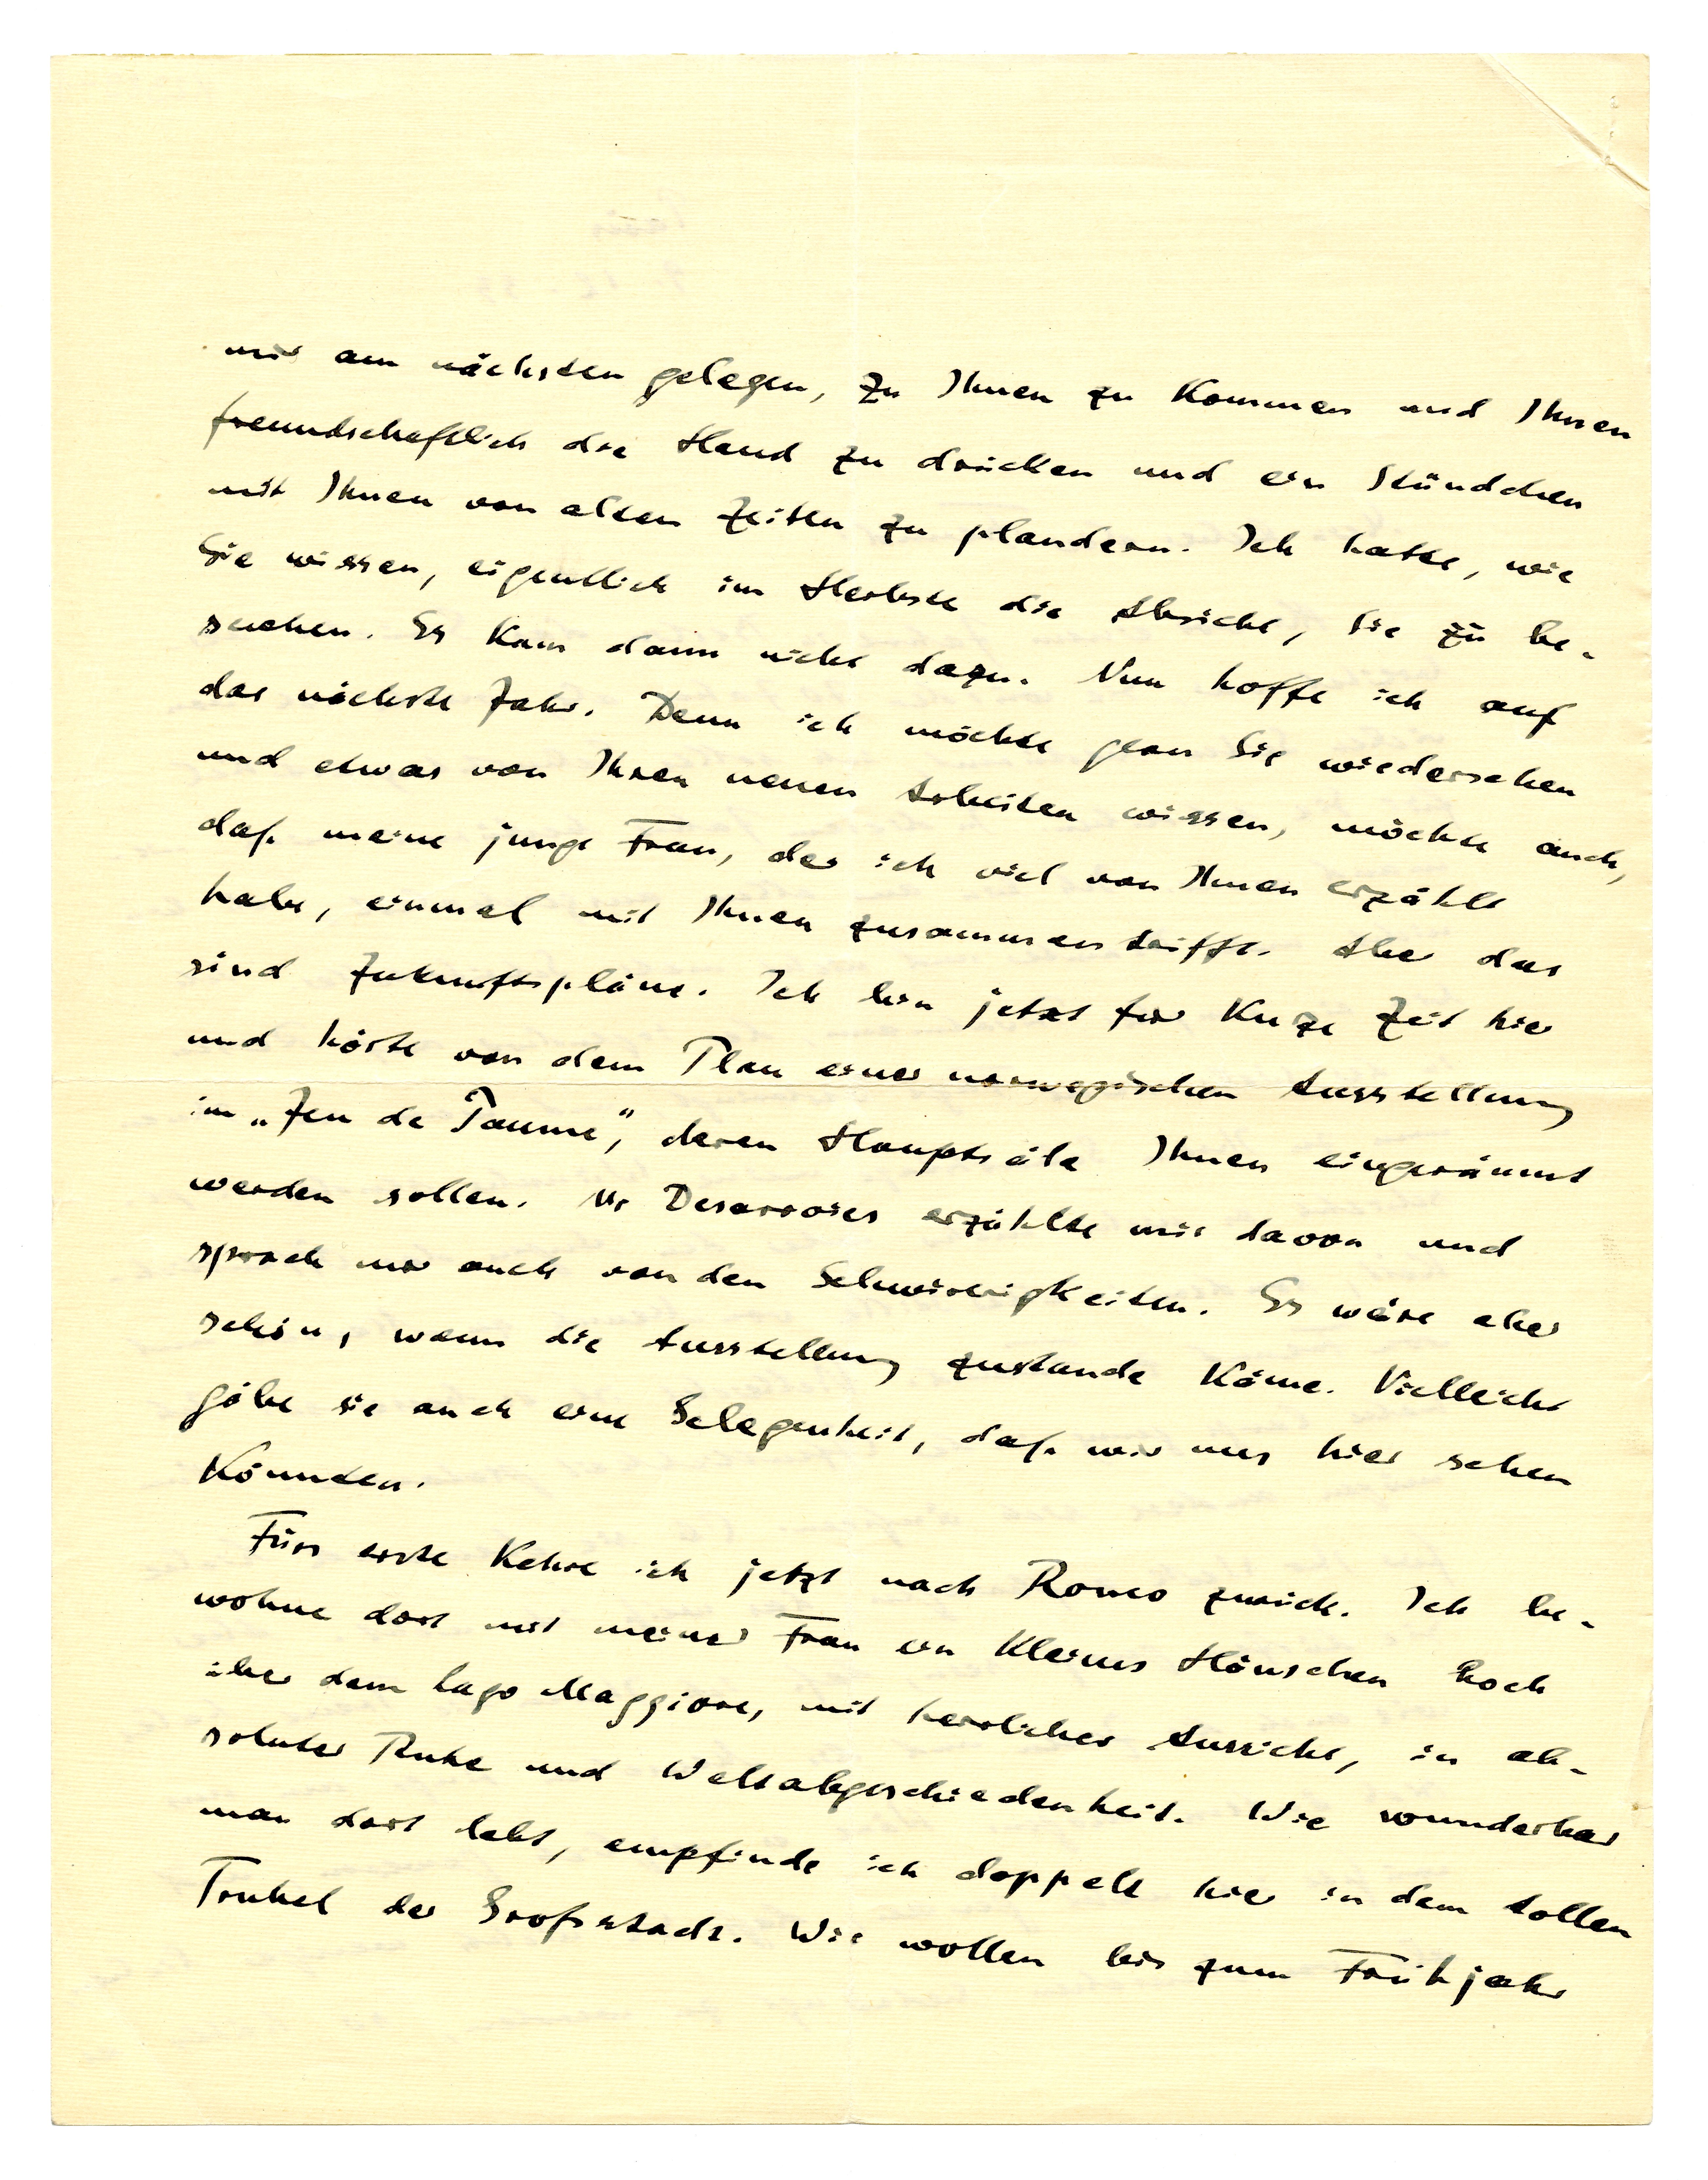 mir am nächsten gelegen, zu Ihnen zu Kommen und Ihnen
freundschaftlich die Hand zu drücken und ein Stündchen
mit Ihnen von alten Zeiten zu plaudern. Ich hatte, wie
Sie wissen, eigentlich im Herbste die Absicht, Sie zu be-
suchen. Es Kam dann nicht dazu. Nun hoffe ich auf
das nächste Jahr. Denn ich möchte gern Sie wiedersehen
und etwas von Ihren neuen Arbeiten wissen, möchte auch,
daß meine junge Frau, der ich viel von Ihnen erzählt
habe, einmal mit Ihnen zusammentrifft. Aber das
sind Zukunftspläne. Ich bin jetzt für Kurze Zeit hier
und hörte von dem Plan einer norwegischen Ausstellung
im „Jeu de Paume“, deren Hauptsäle Ihnen eingeräumt
werden sollen. Mr Desarrois erzählte mir davon und
sprach mir auch von den Schwierigkeiten. Es wäre aber
schön, wenn die Ausstellung zustande Käme. Vielleicht
gäbe sie auch eine Gelegenheit, daß wir uns hier sehen
Könnten.
Fürs erste Kehre ich jetzt nach Ronco zurück. Ich be-
wohne dort mit meiner Frau ein Kleines Häuschen hoch
über dem Lago Maggiore, mit herrlicher Aussicht, in ab-
soluter Ruhe und Weltabgeschiedenheit. Wie wunderbar
man dort lebt, empfinde ich doppelt hier in dem tollen
Trubel der Großstadt. Wir wollen bis zum Frühjahr